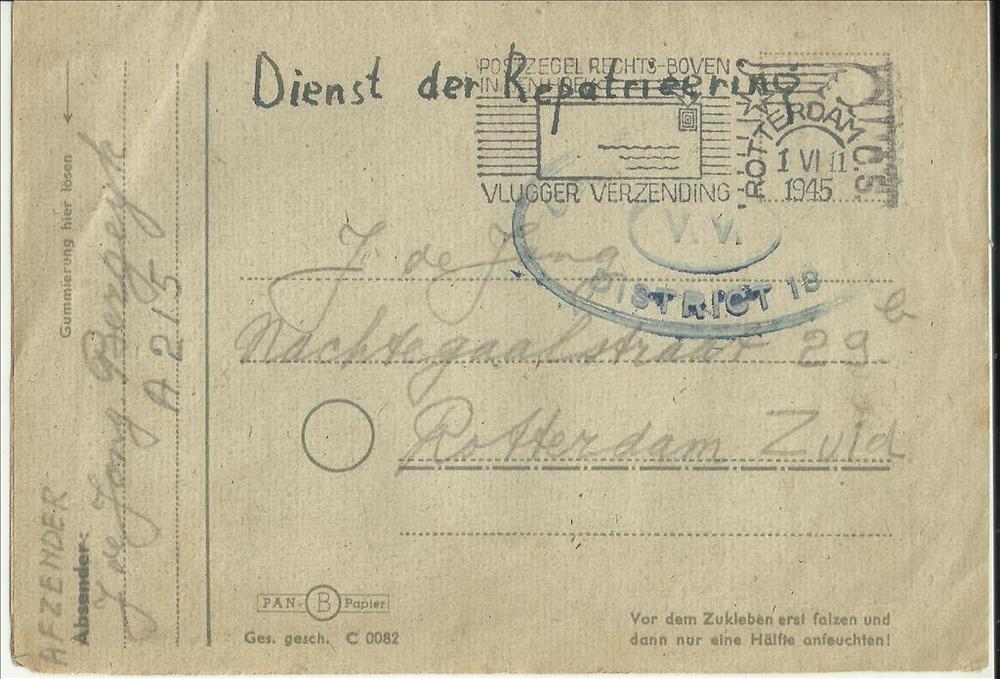 Dienst der Repatrieering
POSTZEGEL RECHTS-BOVEN
VLUGGER VERZENDING
ROTTERDAM
1 VI 11
1945
V. V.
DISTRICT 18
J. de Jong
Nachtegaalstraat 29 b
Rotterdam Zuid
Gummierung hier lösen
AFZENDER
Absender:
J de Jong Bergeyk
A 215
PAN- B Papier
Ges. gesch. C 0082
Vor dem Zukleben erst falzen und
dann nur eine Hälfte anfeuchten!